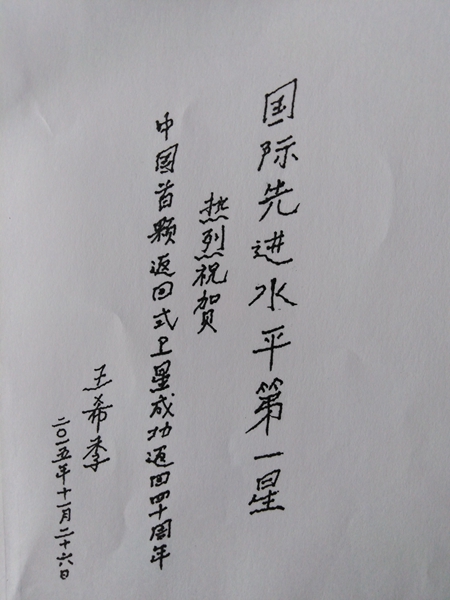 国际先进水平第一星
热烈祝贺
中国首颗返回式卫星成功返回四十周年
王希季
二〇一五年十一月二十六日